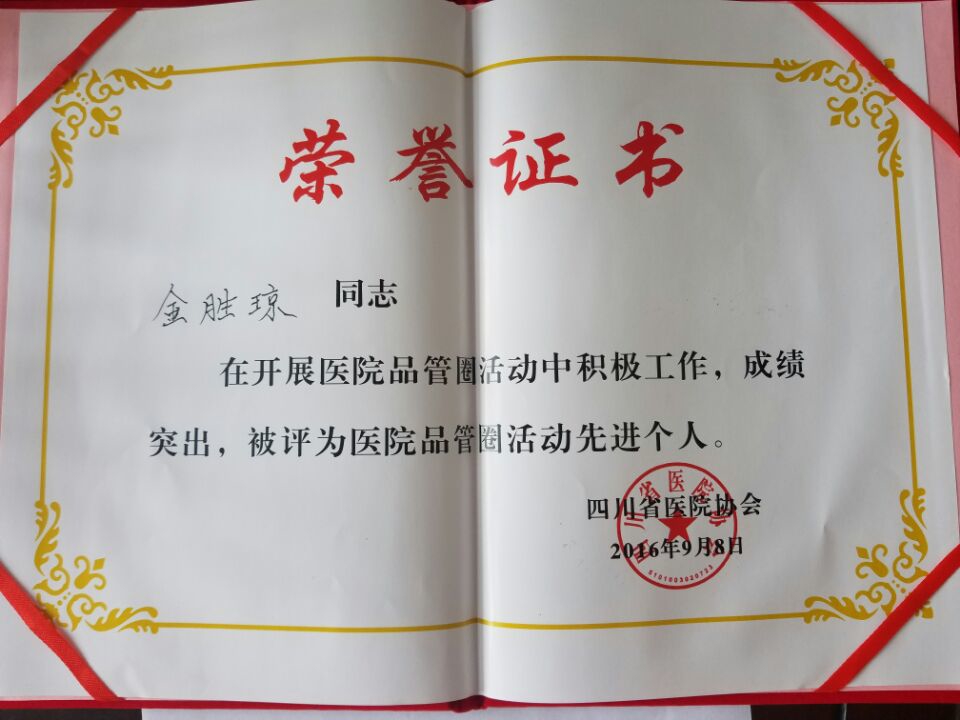 荣誉证书
金胜琼 同志
在开展医院品管圈活动中积极工作，成绩
突出，被评为医院品管圈活动先进个人。
四川省医院协会
2016年9月8日
四川省医院协会
5101003020723